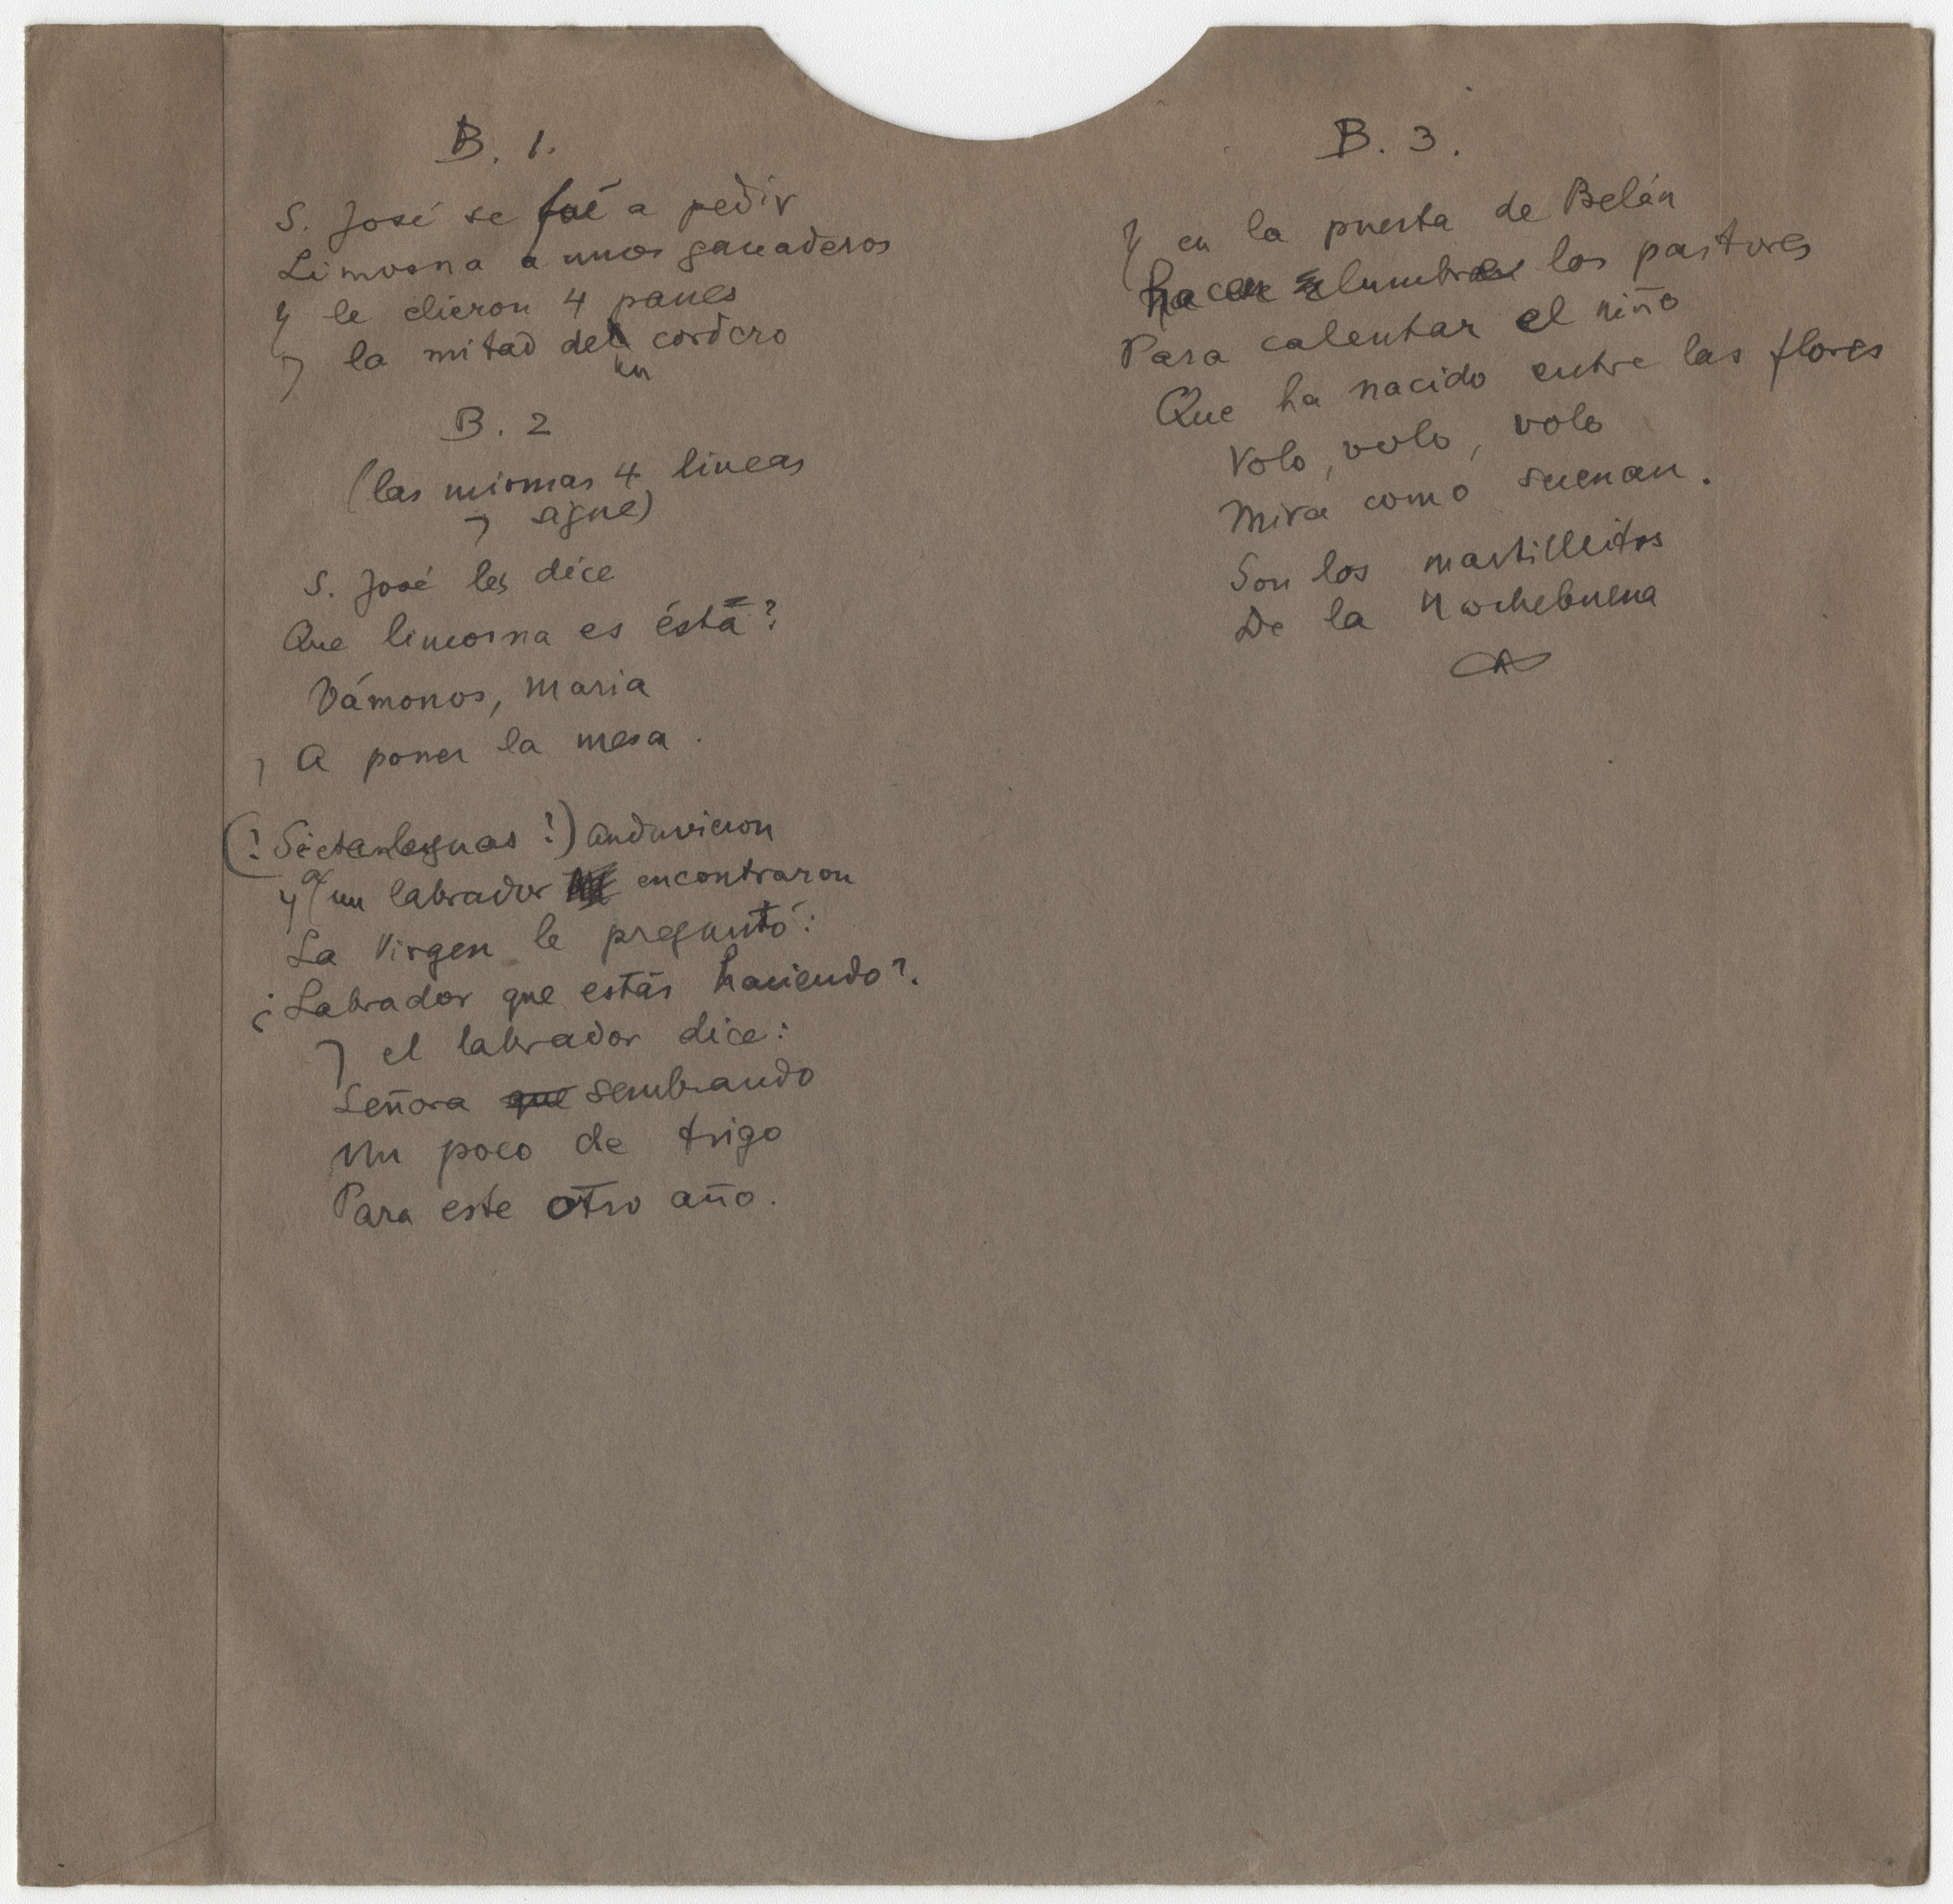 B. 1.
S. José se fué a pedir
Limosna a unos ganaderos
y le dieron 4 panes
y la mitad de un cordero
B. 2
(las mismas 4 lineas
y sigue)
S. José les dice
Que limosna es ésta?
Vámonos, Maria
A poner la mesa.
(? Sietenleguas ?) anduvieron
y a un labrador encontraron
La Virgen le preguntó:
¿Labrador que estás haciendo?.
y el labrador dice:
Señora que sembrando
un poco de trigo
Para este otro año.
B. 3.
y en la puerta de Belén
hacen lumbre los pastores
Para calentar el niño
Que ha nacido entre las flores
Volo, volo, volo
Mira como suenan.
Son los martillitos
De la Nochebuena